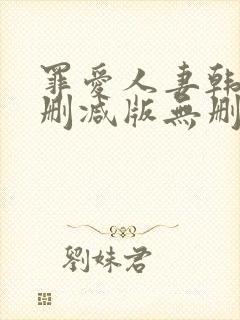 罪爱人妻韩
删减版無删
劉妹君